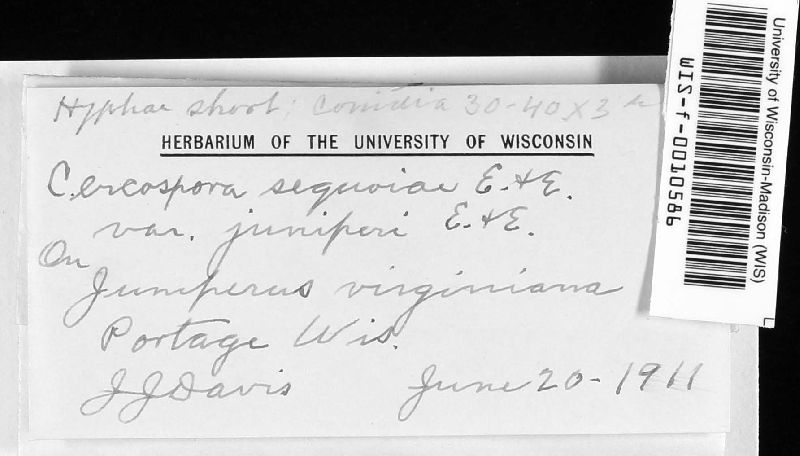 Hyphae short; Conidia 30-40 x 3 µ
HERBARIUM OF THE UNIVERSITY OF WISCONSIN
Cercospora sequoiae E. & E.
var. juniperi E. & E.
On
Juniperus virginiana
Portage Wis.
J J Davis June 20 - 1911
University of Wisconsin-Madison (WIS)
WIS-f-0010586